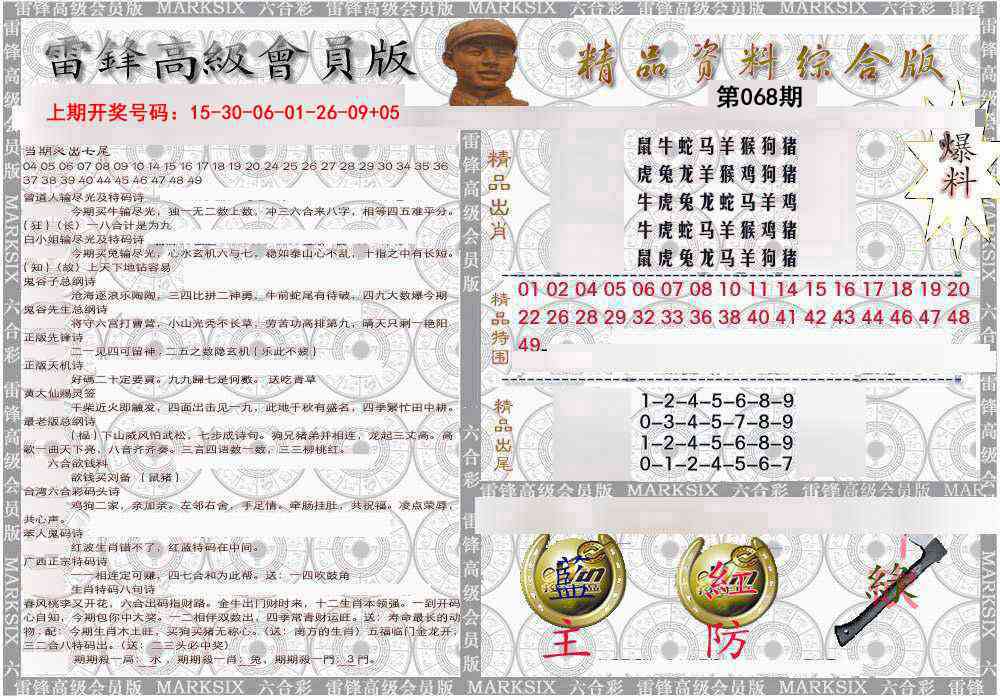 雷锋高级会员版 MARKSIX 六合彩 雷锋高级会员版 MARKSIX 六合彩 雷锋高级会员版 MARKSIX 六合彩 雷锋高级会员版
雷鋒高級會員版
精品资料综合版
第068期
上期开奖号码：15-30-06-01-26-09+05
爆料
当期灵出七尾
04 05 06 07 08 09 10 14 15 16 17 18 19 20 24 25 26 27 28 29 30 34 35 36
37 38 39 40 44 45 46 47 48 49
曾道人输尽光及特码诗
今期买牛输尽光，独一无二数上数，冲三六合来八字，相等四五准平分。
(狂)（长）一八合计是为九
白小姐输尽光及特码诗
今期买兔输尽光，心水玄机六与七，稳如泰山心不乱，十指之中有长短。
(知)（故）上天下地钻容易
鬼谷子总纲诗
沧海逐浪乐陶陶，三四比拼二神勇，牛前蛇尾有待破，四九大数爆今期
鬼谷先生总纲诗
将守六宫打曹营，小山光秃不长草，劳苦功高排第九，瞒天只剩一艳阳
正版先锋诗
二一见四可留神，二五之数隐玄机{乐此不疲}
正版天机诗
好碼二十定要買。九九歸七是何數。 送吃青草
黄大仙赐灵签
干柴近火即融发，四面出击见一九，此地千秋有盛名，四季繁忙田中耕。
最老版总纲诗
(福)下山威风怕武松，七步成诗句。狗兄猪弟并相连，龙起三丈高。高
歌一曲天下亮，八音齐齐奏。三言四语数一数，三三柳桃红。
六合欲钱料
欲钱买刘备 〔鼠猪〕
台湾六合彩码头诗
鸡狗二家，亲加亲。左邻右舍，手足情。牵肠挂肚，共祝福。凌点荣辱，
共心声。
本人鬼码诗
红波生肖错不了，红蓝特码在中间。
广西正宗特码诗
一一相连定可赚，四七合和为此帮。送：一四吹鼓角
生肖特码八句诗
春风桃李又开花，六合出码指财路。金牛出门财时来，十二生肖本领强。一到开码
心自知，今期包你中大奖。一二相伴双数出，四季常青财运旺。送：寿命最长的动
物；配：今期生肖木土旺，买狗买猪无称心。（送：南方的生肖）五福临门金龙开，
三二合八特码出。（送：二三头必中奖）
期期殺一局：水，期期殺一肖：兔，期期殺一門：3門。
精品出肖
鼠牛蛇马羊猴狗猪
虎兔龙羊猴鸡狗猪
牛虎兔龙蛇马羊鸡
牛虎蛇马羊猴鸡猪
鼠虎兔龙马羊狗猪
精品特围
01 02 04 05 06 07 08 10 11 14 15 16 17 18 19 20
22 26 28 29 32 33 36 38 40 41 42 43 44 46 47 48
49
精品出尾
1-2-4-5-6-8-9
0-3-4-5-7-8-9
1-2-4-5-6-8-9
0-1-2-4-5-6-7
雷锋高级会员版 MARKSIX 六合彩 雷锋高级会员版 MARKSIX
藍 主
红 防
綠
雷锋高级会员版 MARKSIX 六合彩 雷锋高级会员版 MARKSIX 六合彩 雷锋高级会员版 MARKSIX 六合彩 雷锋